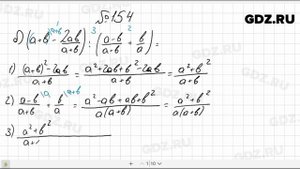 GDZ.RU
№154
б) ((a+b)^(a+b) - 2ab/(a+b)) : (a-b/(a+b) + b/a) =
1) ((a+b)² - 2ab)/(a+b) = (a² + 2ab + b² - 2ab)/(a+b) = (a² + b²)/(a+b)
2) (a-b)/(a+b) + b/a = (a² - ab + ab + b²)/(a(a+b)) = (a² + b²)/(a(a+b))
3) (a² + b²)/(a+
1/10
GDZ.RU